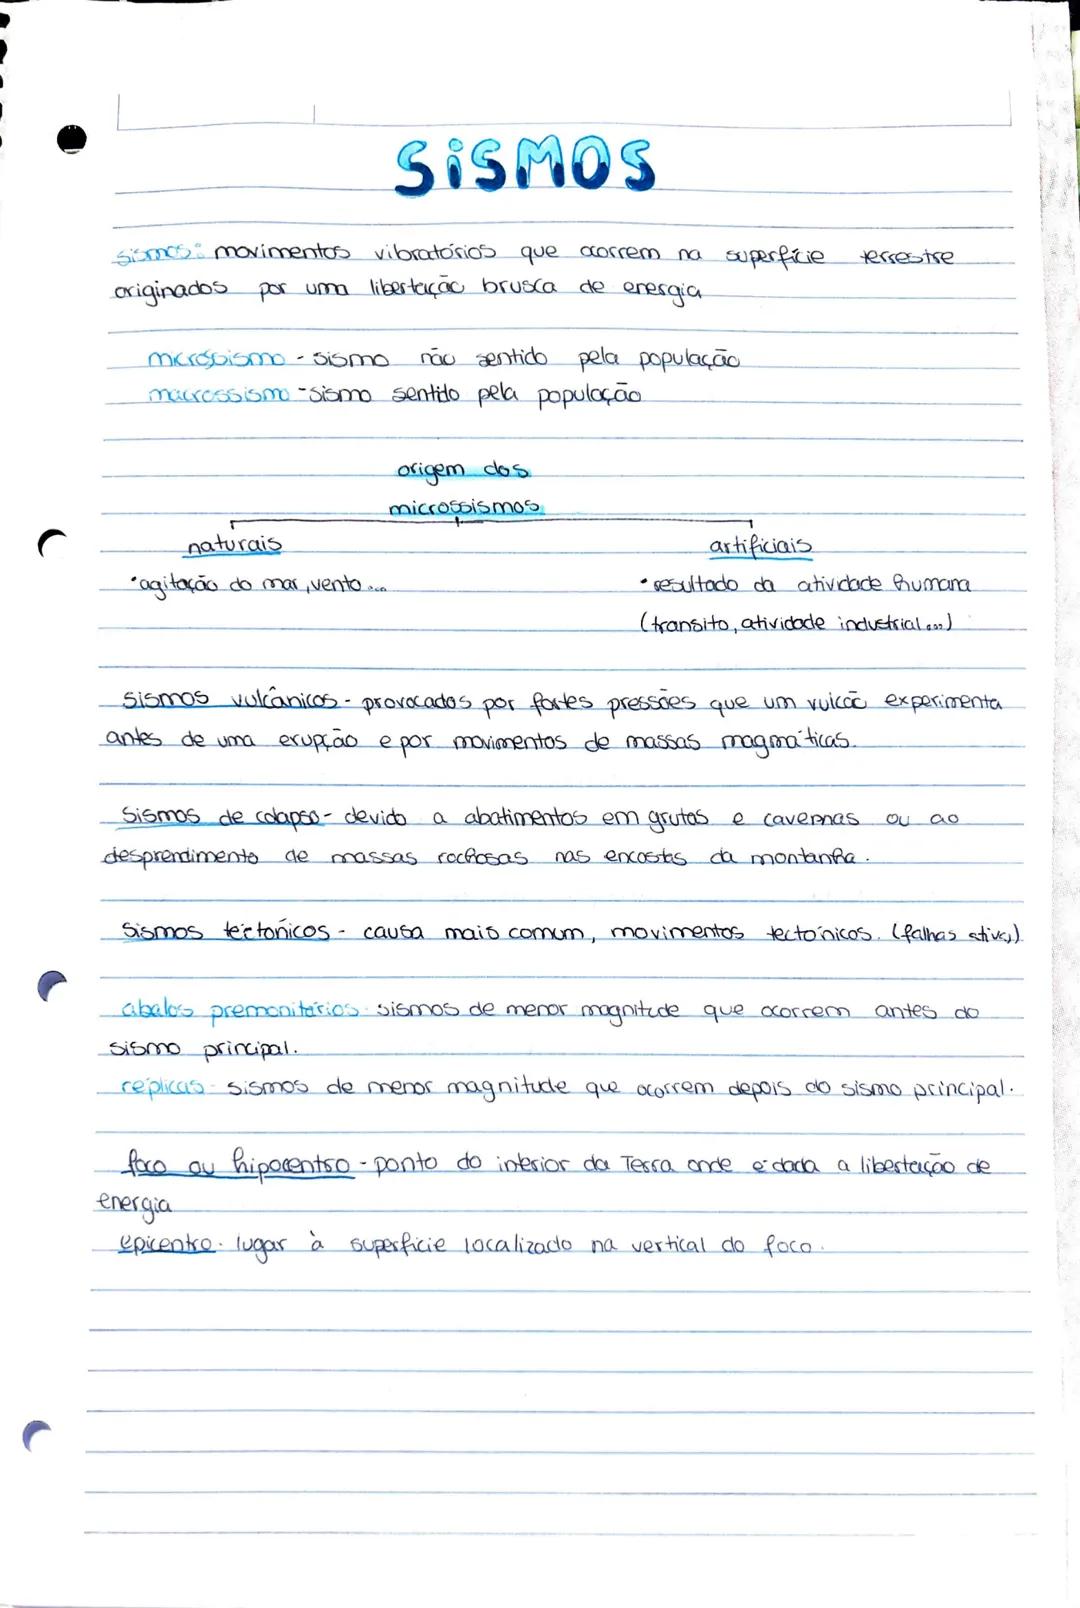 SiSMOS
sismos: movimentos vibratórios que ocorrem na superfície terrestre
originados por uma libertação brusca de energia
microssismo - sismo não sentido pela população
macrossismo - sismo sentido pela população
origem dos
microssismos
naturais
artificiais
•agitação do mar, vento...
•resultado da atividade humana
(transito, atividade industrial...)
sismos vulcânicos - provocados por fortes pressões que um vulcão experimenta
antes de uma erupção e por movimentos de massas magmáticas.
sismos de colapso - devido a abatimentos em grutas e cavernas ou ao
desprendimento de massas rochosas nas encostas da montanha.
sismos tectónicos - causa mais comum, movimentos tectónicos. (falhas ativas)
abalos premonitários - sismos de menor magnitude que ocorrem antes do
sismo principal.
réplicas - sismos de menor magnitude que ocorrem depois do sismo principal.
foco ou hipocentro - ponto do interior da Terra onde é dada a libertação de
energia
epicentro - lugar à superfície localizado na vertical do foco.